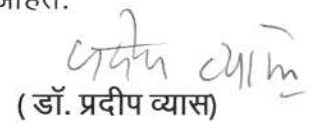 आहेत.
प्रदीप व्यास
( डॉ. प्रदीप व्यास)